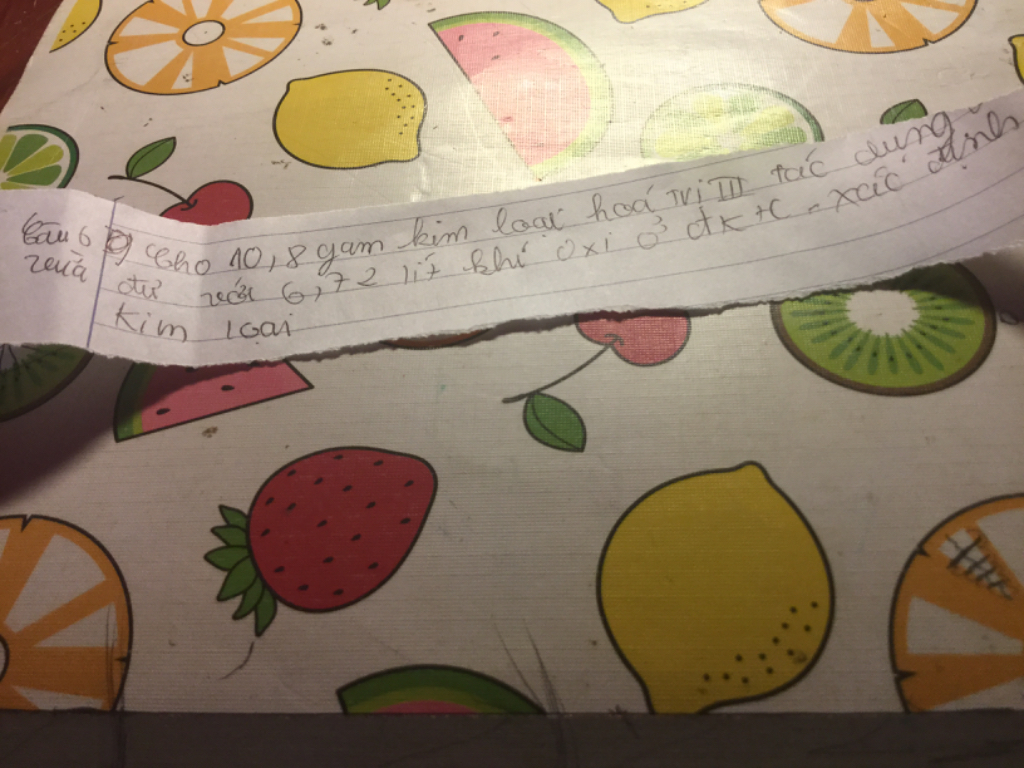 Câu 6 Cho 10,8 gam kim loại hoá trị III tác dụng
vừa đủ với 6,72 lít khí Oxi ở đk+c. xác định
kim loại